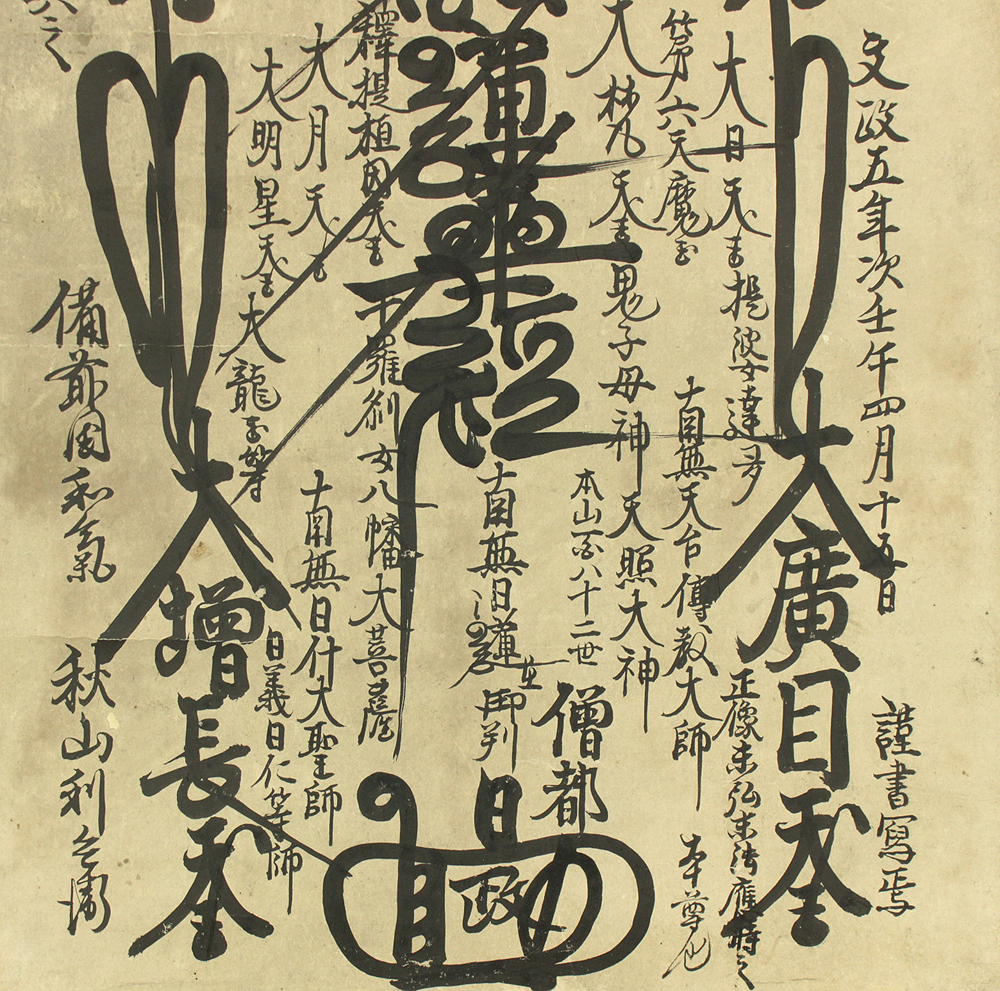 文政五年次壬午四月十五日
謹書寫焉
大廣目天王
大日天王 提婆達多
正像未弘末法應時之
本尊也
第六天魔王
南無天台傳教大師
大梵天王 鬼子母神 天照大神
本山百八十二世
僧都
日
蓮華経
南無日蓮
在御判
釋提桓因天王 十羅刹女 八幡大菩薩
大月天王
南無日什大聖師
日義日仁等師
大明星天王 大龍王等
大増長天王
備前国和氣
秋山利兵衛